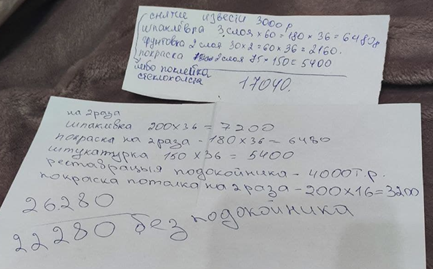 снятие извести 3000 р.
шпаклёвка 3 слоя × 60 = 180 × 36 = 6480
грунтовка 2 слоя 30×2=60 × 36 = 2160.
покраска 2 слоя 150 = 5400
либо поклейка
стеклохолста
17040.
на 2 раза
шпаклевка 200×36 = 7200
покраска на 2 раза - 180×36 = 6480
штукатурка 150 × 36 = 5400
реставрация подокойника - 4000 т р.
покраска потолка на 2 раза - 200×16=3200
26280
22280 без подокойника